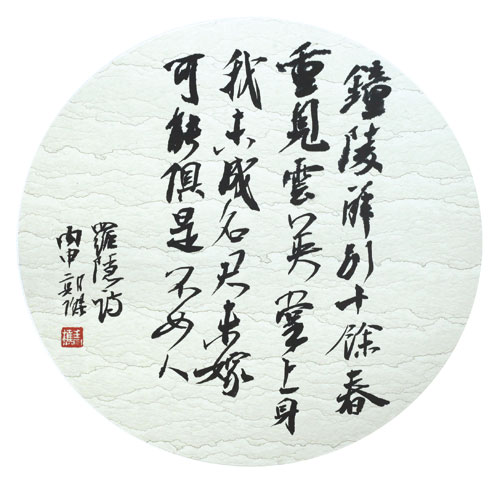 鐘陵醉別十餘春
重見雲英掌上身
我未成名君未嫁
可能俱是不如人
羅隱詩
丙申